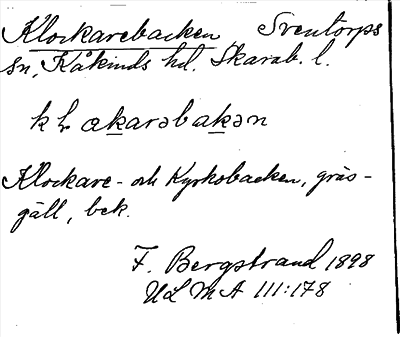 Klockarebacken, Sventorps
sn, Kåkinds hd. Skarab. l.
Klockare- och Kyrkobacken, gräs-
gäll, bek.
F. Bergstrand 1898
ULMA 111:178